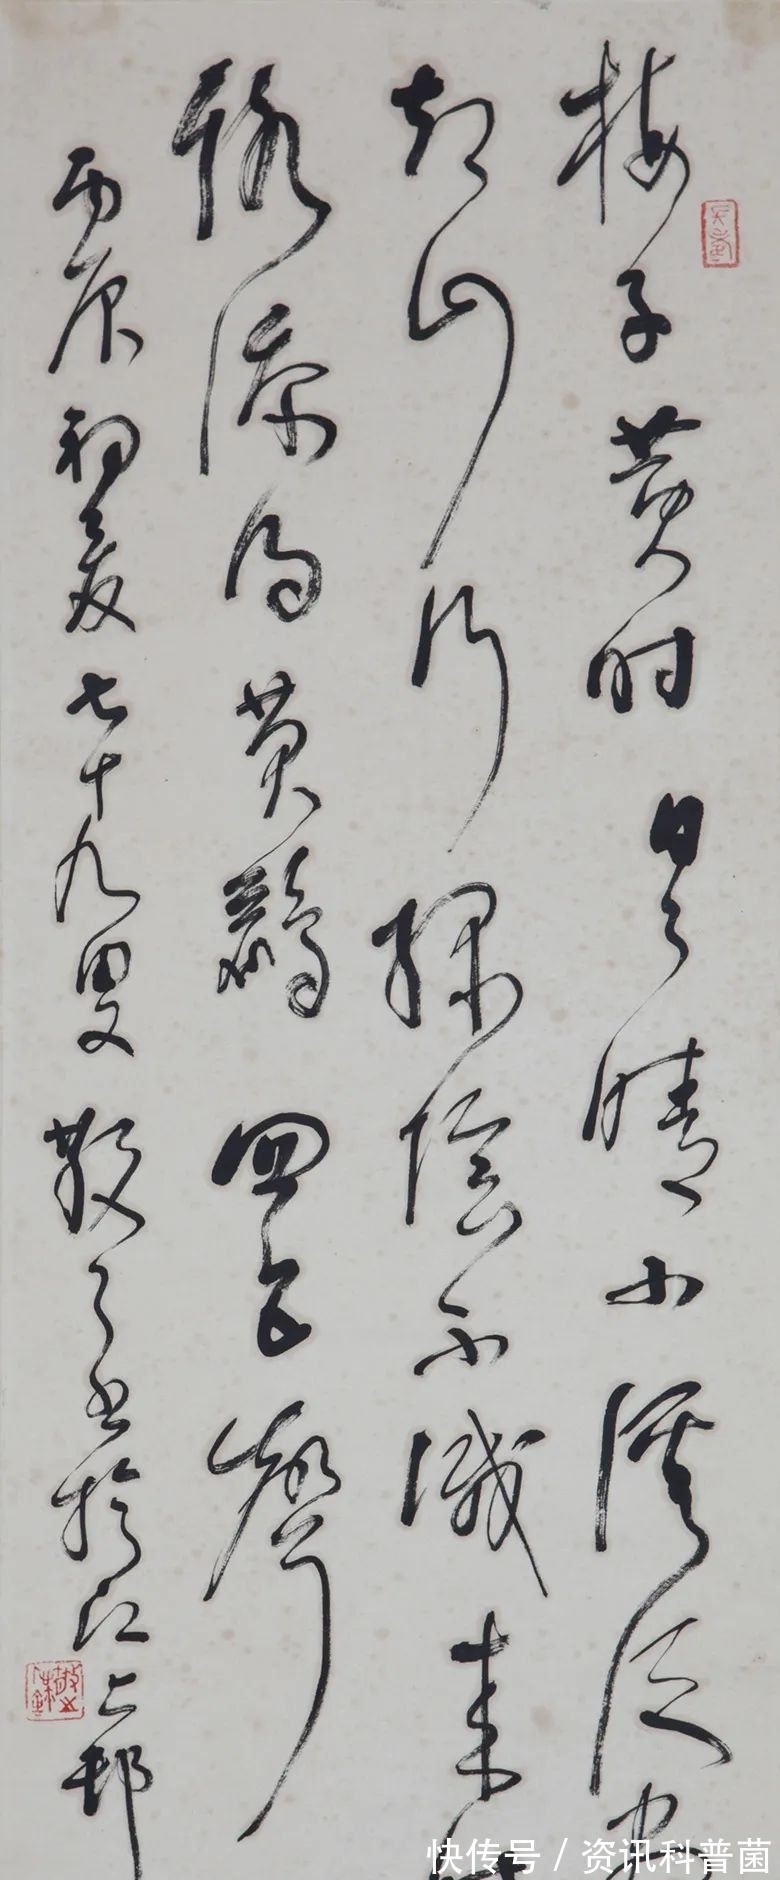 梅子黄时日日晴小溪泛尽
却山行绿阴不减来时
路添得黄鹂四五声
丙辰初夏七十九叟散之书于江上邨
快传号 / 资讯科普菌